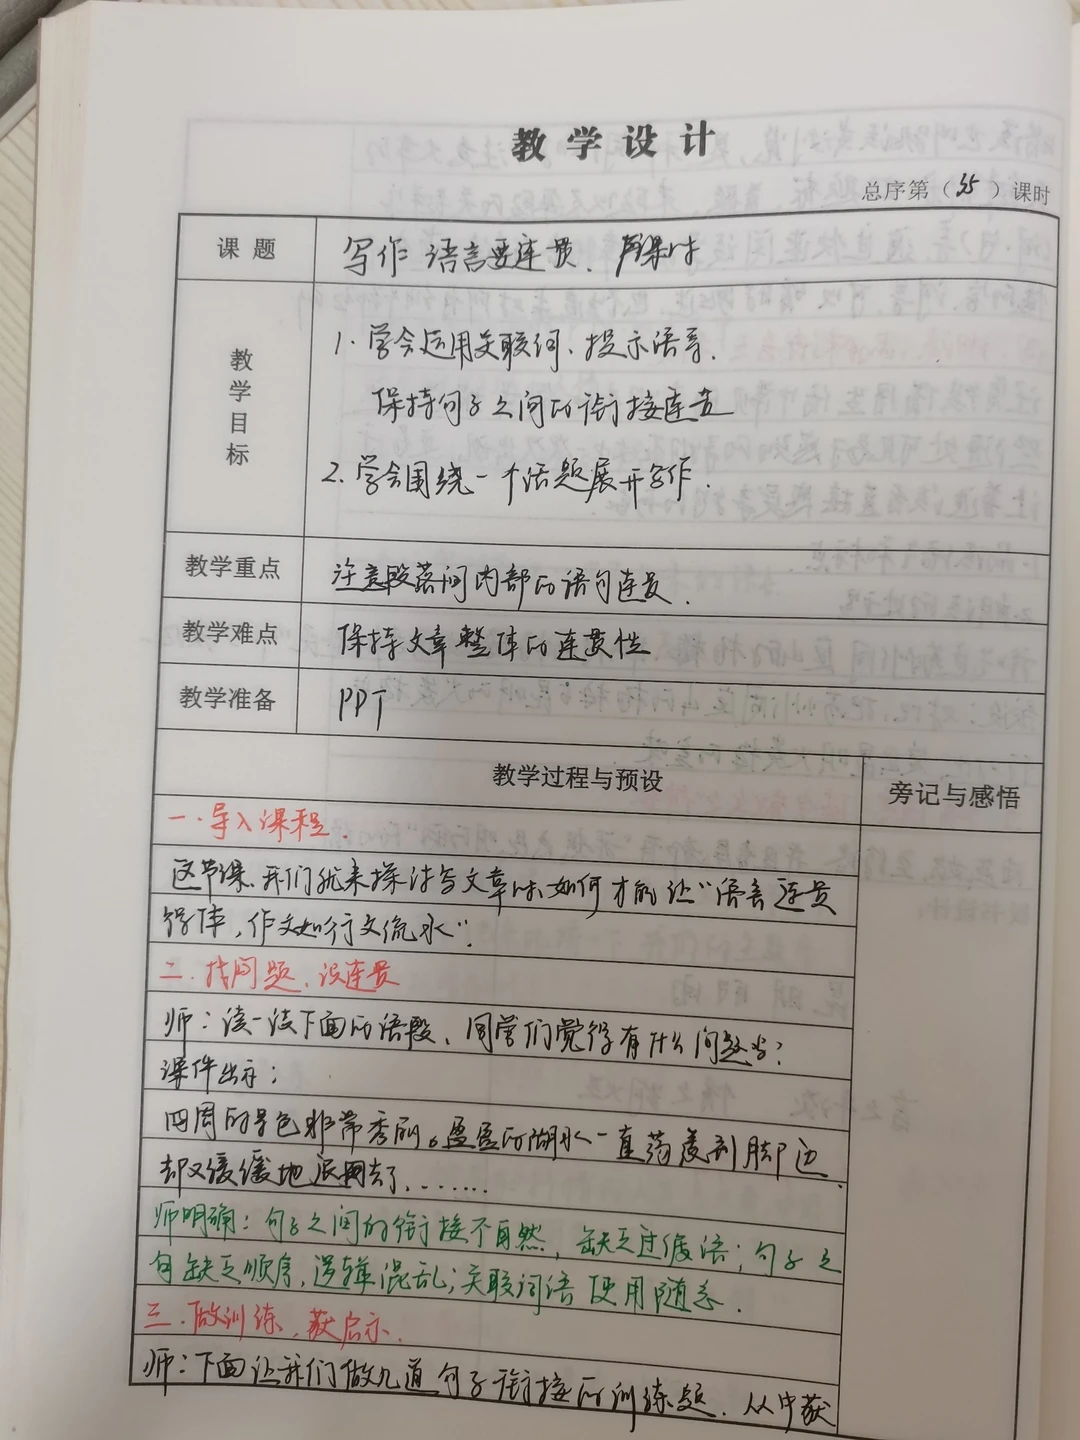 教学设计
总序第（35）课时
课题 写作 语言要连贯、
教学目标
1. 学会运用关联词、提示语等、
保持句子之间的衔接连贯
2. 学会围绕一个话题展开写作.
教学重点 注意段落间内部的语句连贯.
教学难点 保持文章整体的连贯性
教学准备 PPT
教学过程与预设 旁记与感悟
一. 导入课程.
这节课.我们就来探讨写文章时.如何才能让"语言连贯
得体,作文如行文流水".
二. 找问题、设连贯
师：读一读下面的语段、同学们觉得有什么问题?
课件出示：
四周的景色非常秀丽。盈盈的湖水一直荡漾到脚边.
却又缓缓地退回去了.……
师明确：句子之间的衔接不自然，缺乏过渡语；句子之
间缺乏顺序,逻辑混乱;关联词语使用随意.
三. 做训练、获启示.
师：下面让我们做几道句子衔接的训练题、从中获